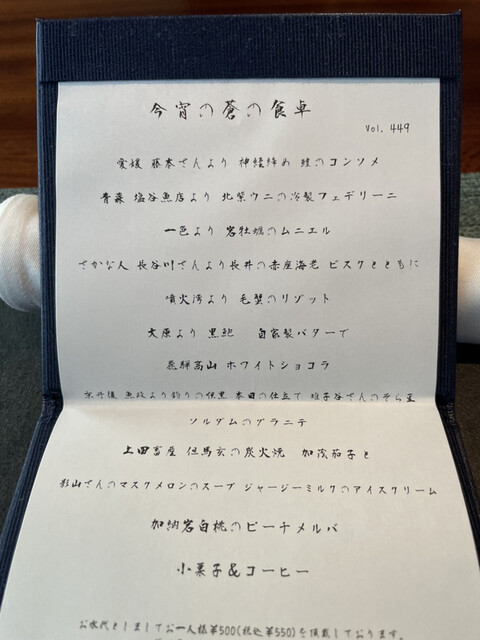 今宵の蒼の食卓
Vol. 449
愛媛 藤本さんより 神経締め 鮭のコンソメ
青森 塩谷魚店より 北紫ウニの冷製フェデリーニ
一色より 岩牡蠣のムニエル
さかな人 長谷川さんより長井の赤座海老 ビスクとともに
噴火湾より 毛蟹のリゾット
大原より 黒鮑 自家製バターで
飛騨高山 ホワイトショコラ
京丹後 魚政より釣りの 本日の仕立て 雉子谷さんのそら豆
ソルダムのグラニテ
上田畜産 但馬玄の炭火焼 加茂茄子と
影山さんのマスクメロンのスープ ジャージーミルクのアイスクリーム
加納岩白桃のピーチメルバ
小菓子&コーヒー
お水代としましてお一人様¥500(税込¥550)を頂戴しております。